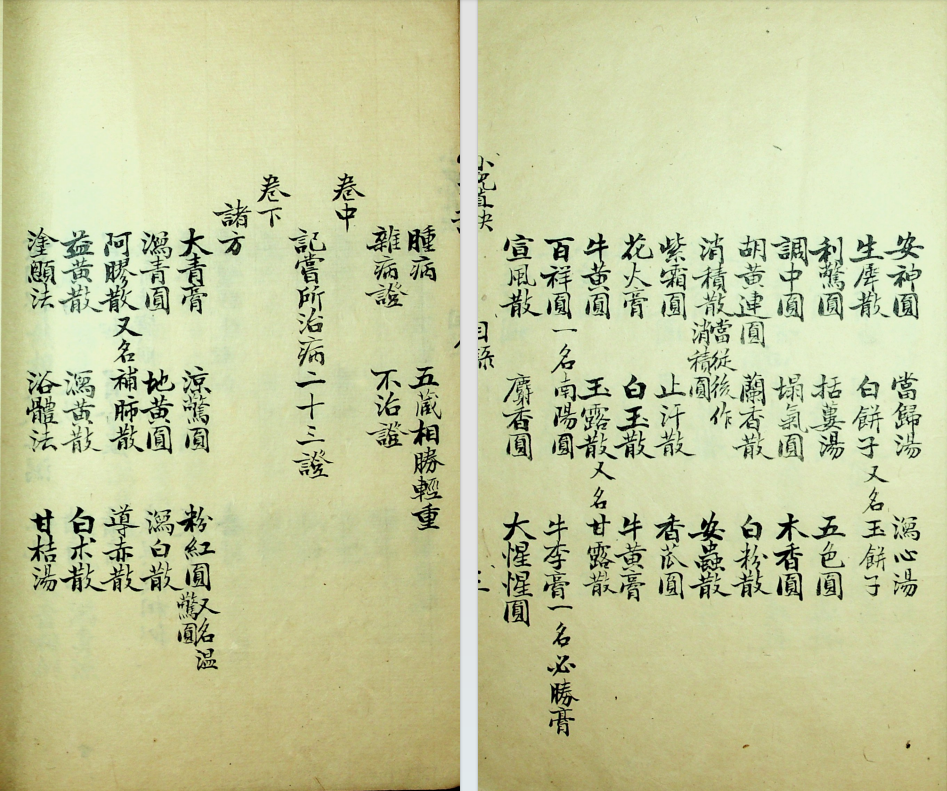 腫病 五藏相勝輕重
雜病證 不治證
卷中
記嘗所治病二十三證
卷下
諸方
大青膏 涼驚圓 粉紅圓又名温驚圓
瀉青圓 地黃圓 瀉白散
阿膠散又名補肺散 導赤散
益黃散 瀉黃散 白朮散
塗顖法 浴體法 甘桔湯
安神圓 當歸湯 瀉心湯
生犀散 白餅子又名玉餅子
利驚圓 括蔞湯 五色圓
調中圓 塌氣圓 木香圓
胡黃連圓 蘭香散 白粉散
消積散當從後作消積圓 安蟲散
紫霜圓 止汗散 香苽圓
花火膏 白玉散 牛黃膏
牛黃圓 玉露散又名甘露散
百祥圓一名南陽圓 牛李膏一名必勝膏
宣風散 麝香圓 大惺惺圓